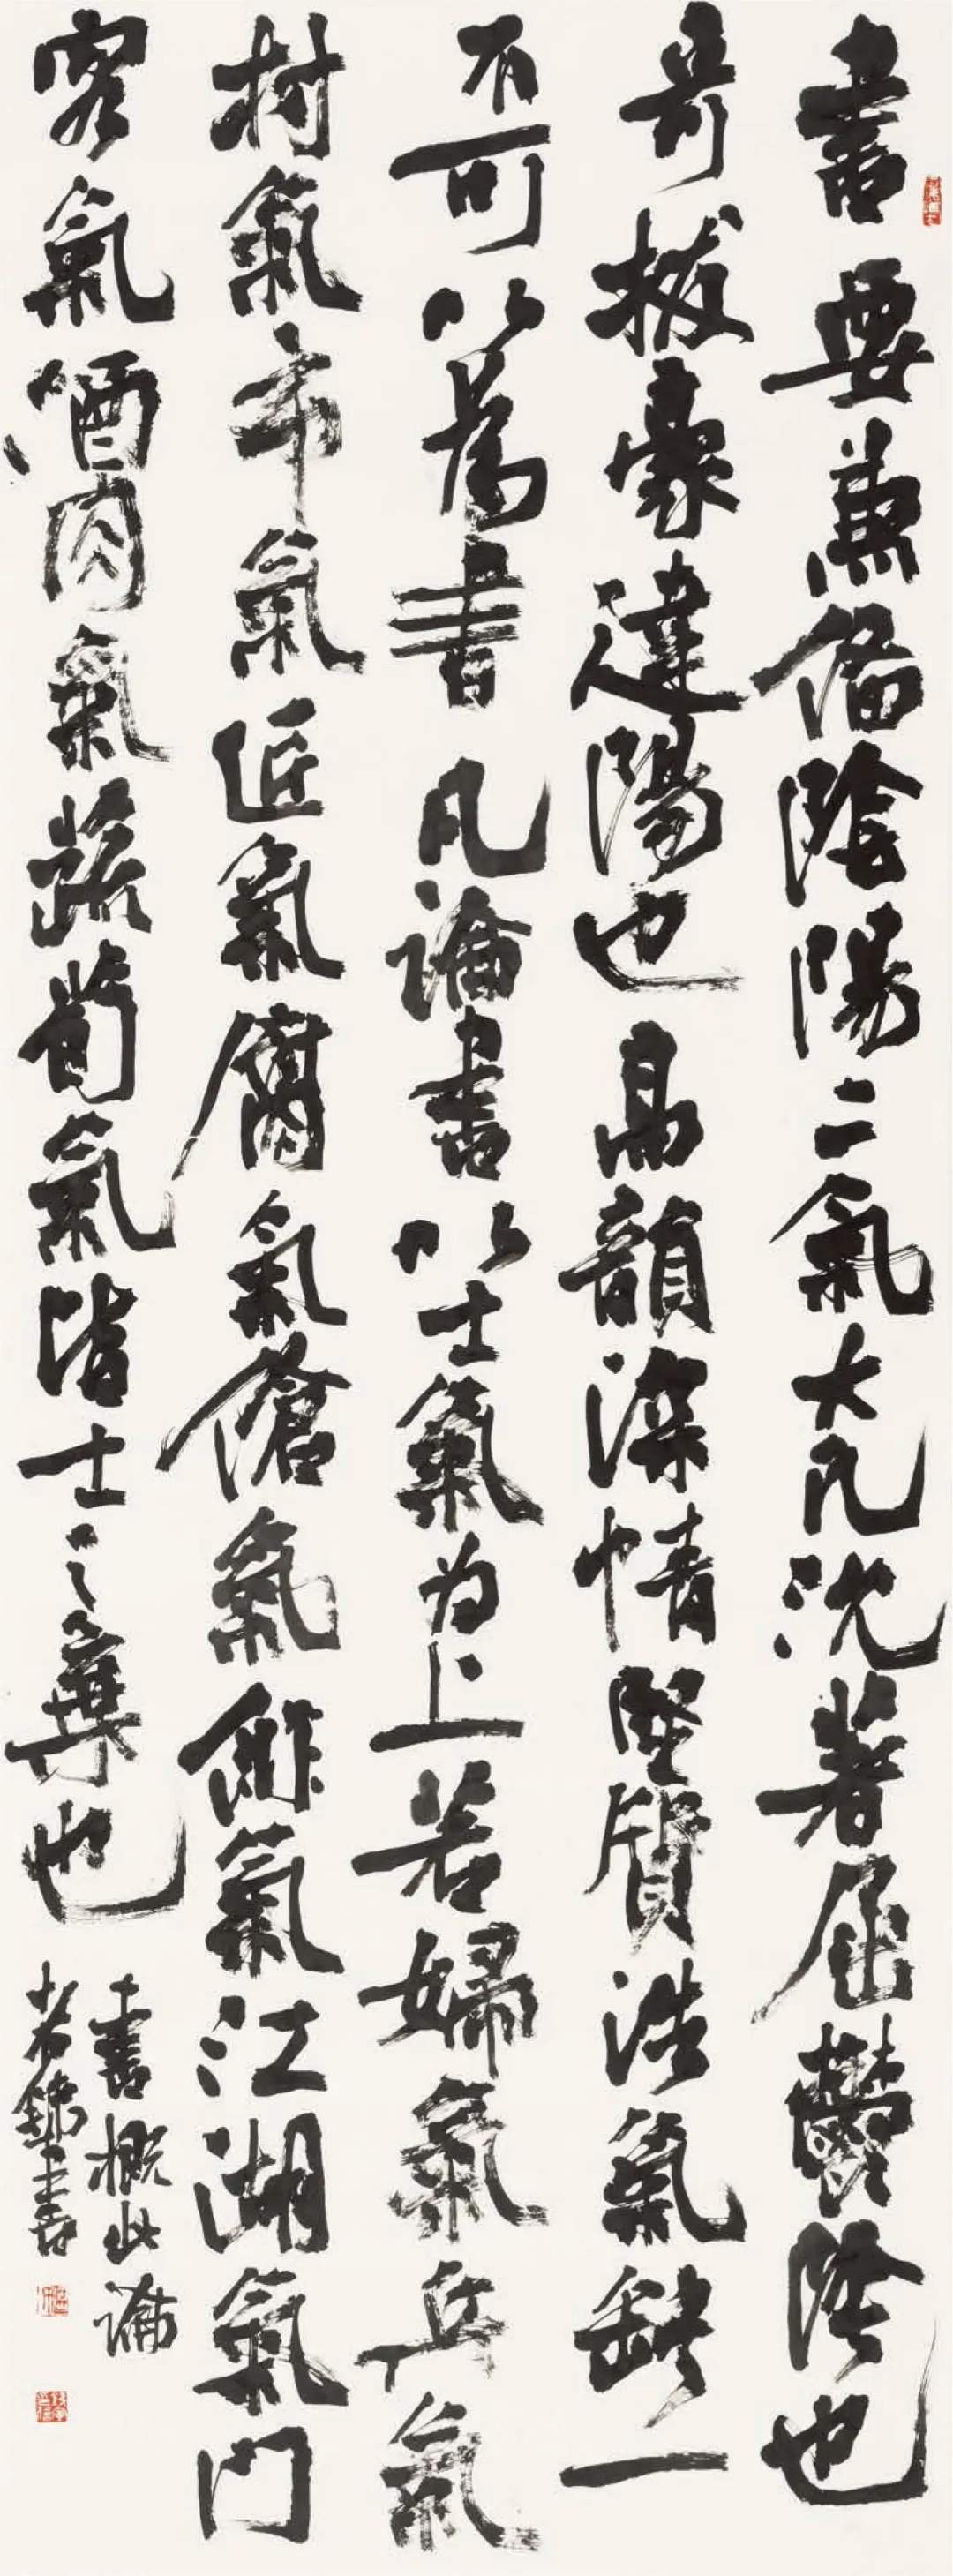 書要兼備陰陽二氣大凡沈著屈鬱陰也
奇拔豪達陽也高韻深情堅質浩氣缺一
不可以為書凡論書以士氣為上若婦氣兵氣
村氣市氣匠氣腐氣傖氣俳氣江湖氣門
客氣酒肉氣蔬筍氣皆士之棄也
書概此論